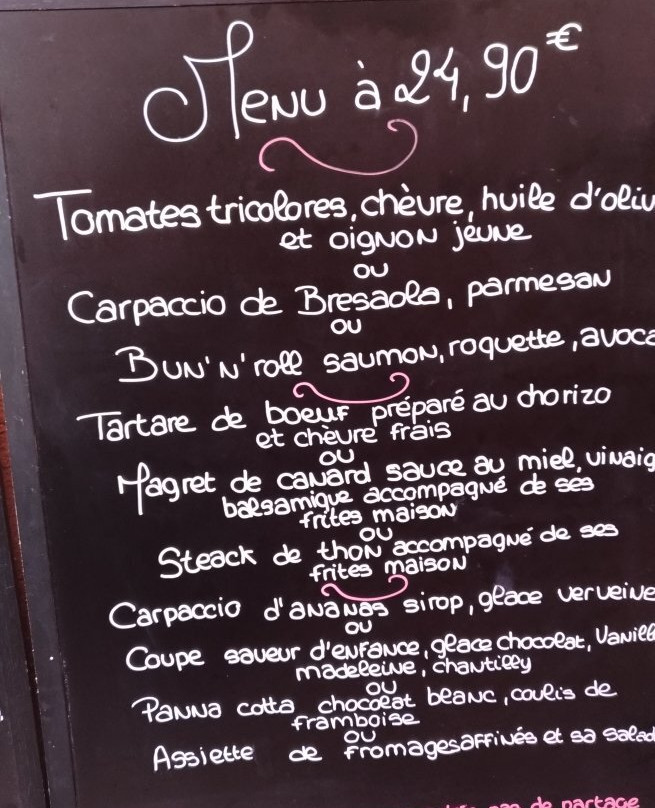 Menu à 24,90€
Tomates tricolores, chèvre, huile d'oliv
et oignon jeune
ou
Carpaccio de Bresaola, parmesan
ou
Bun'n'roll saumon, roquette, avoca
Tartare de boeuf préparé au chorizo
et chèvre frais
ou
Magret de canard sauce au miel, vinaig
balsamique accompagné de ses
frites maison
ou
Steack de thon accompagné de ses
frites maison
Carpaccio d'ananas sirop, glace verveine
ou
Coupe saveur d'enfance, glace chocolat, vanill
madeleine, chantilly
ou
Panna cotta chocolat blanc, coulis de
framboise
ou
Assiette de fromages affinés et sa salad
pas de partage